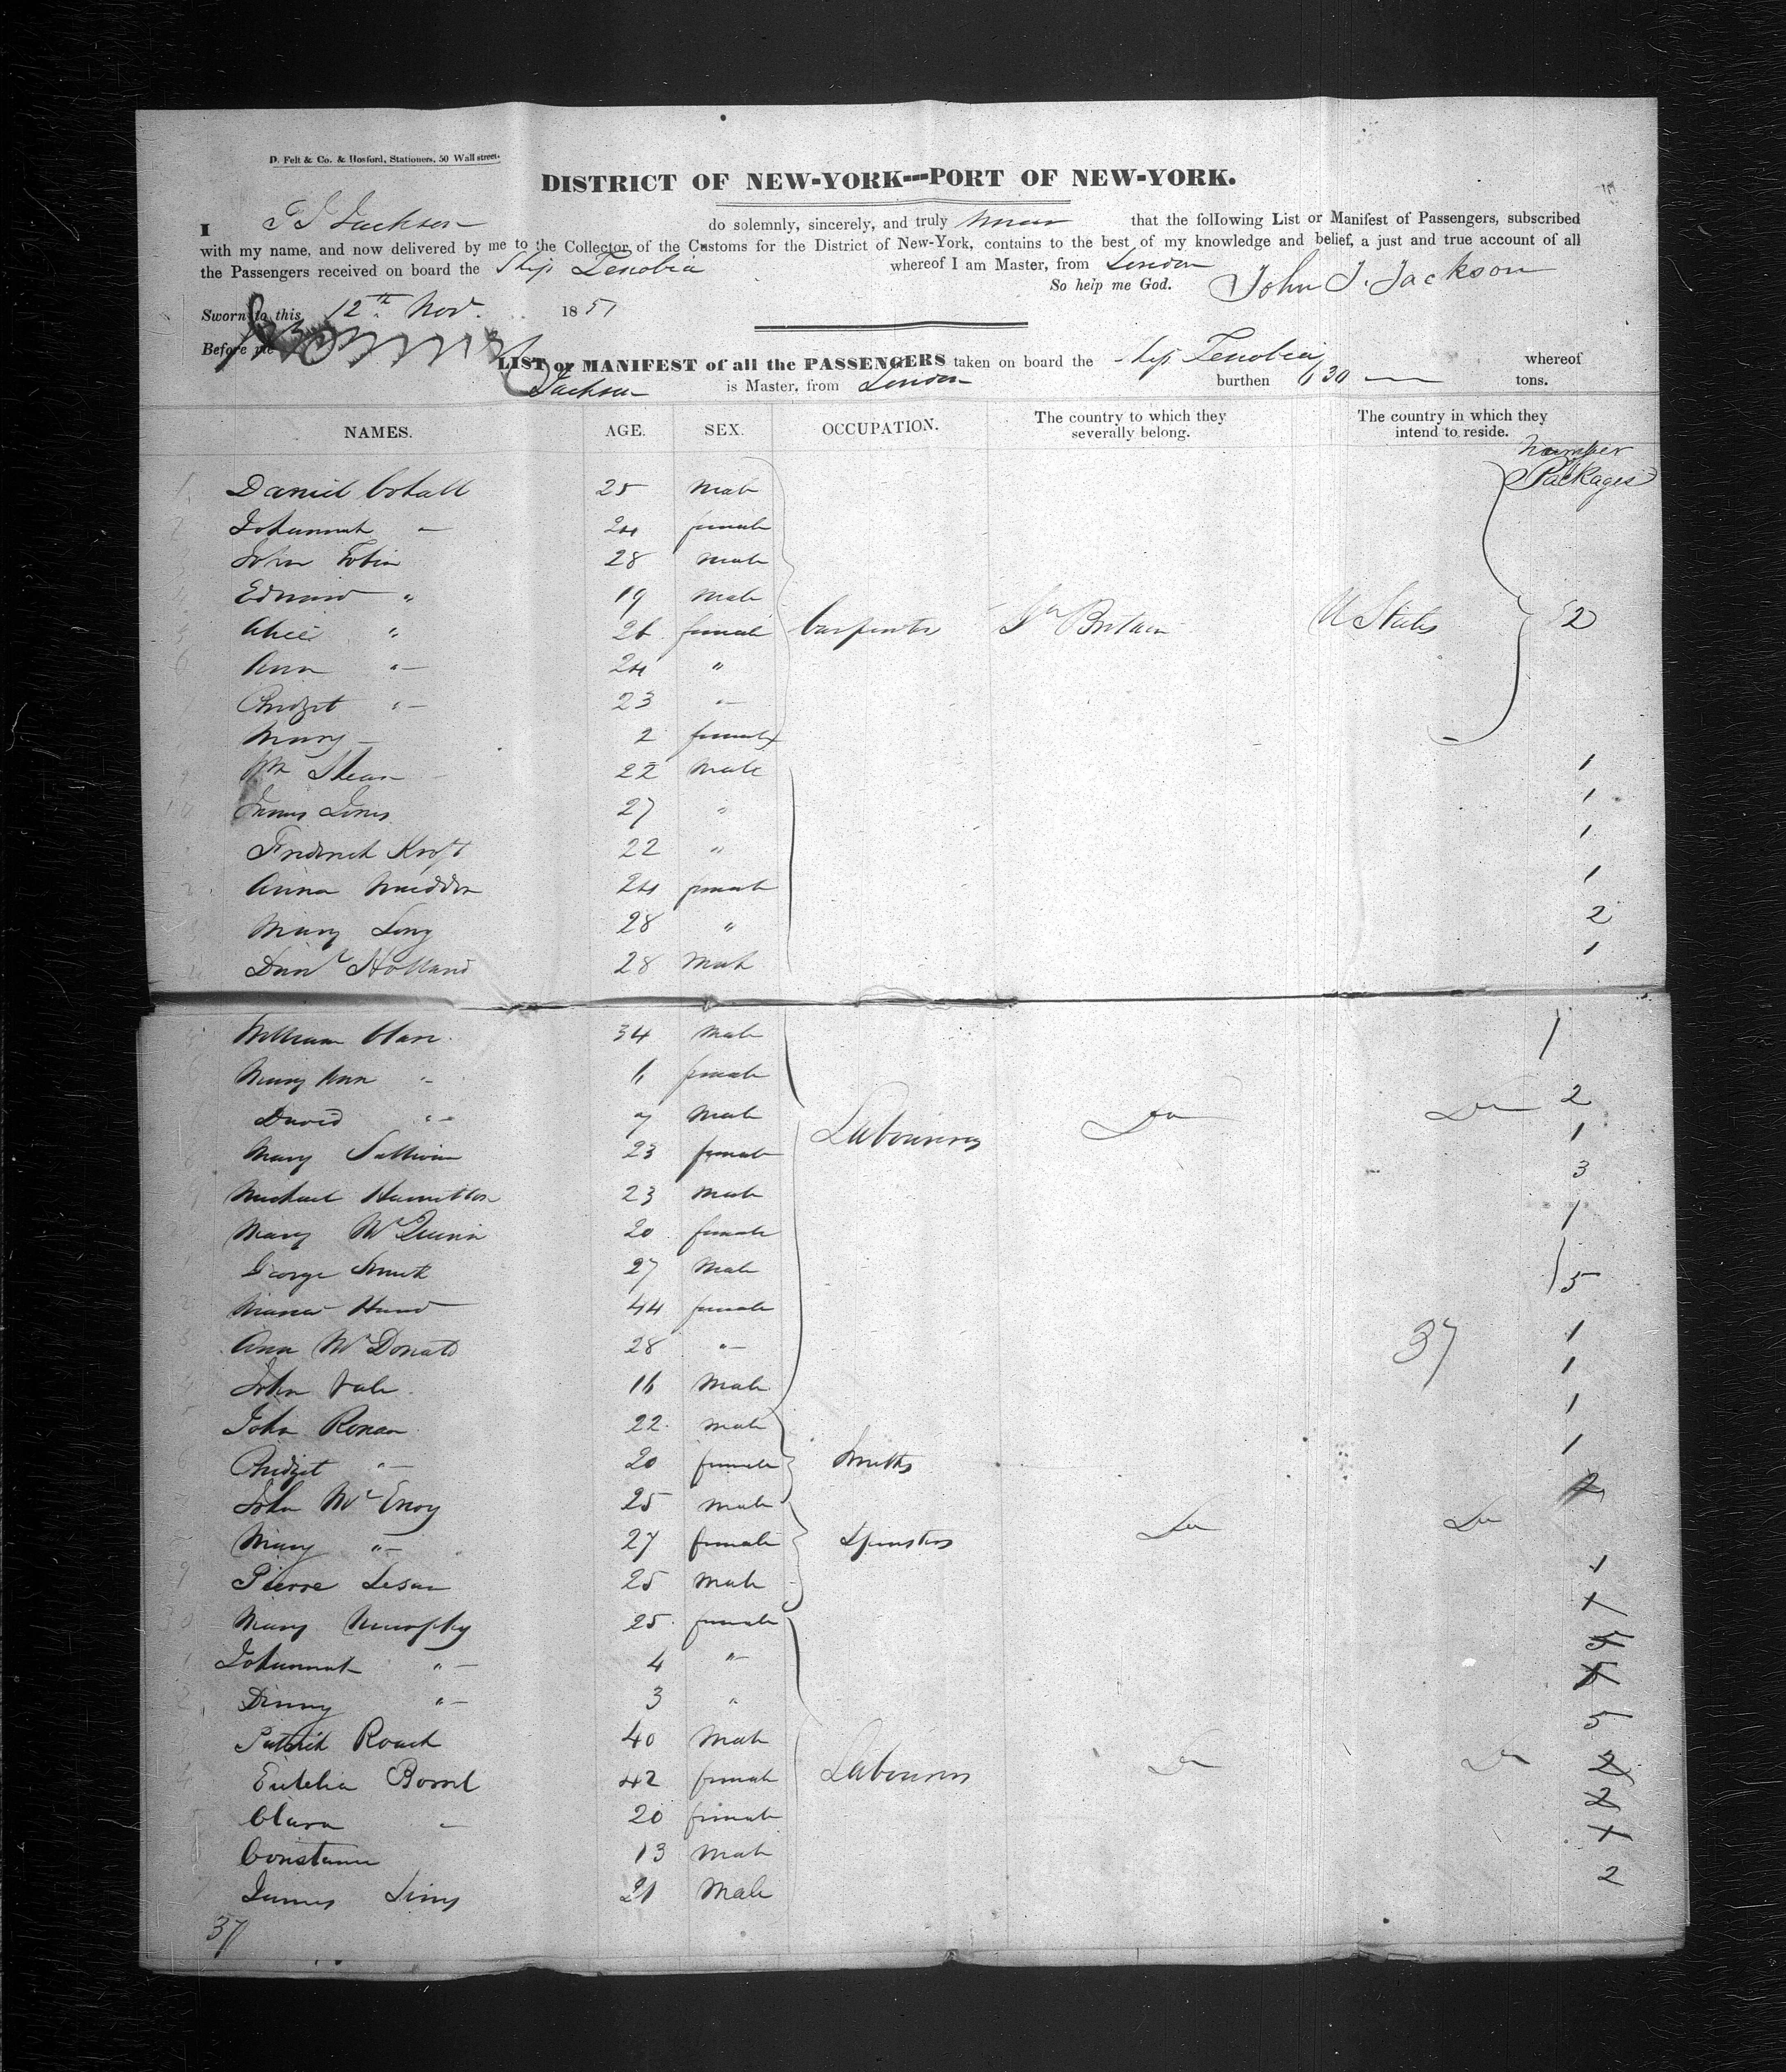 D. Felt & Co. & Hosford, Stationers, 50 Wall street.
DISTRICT OF NEW-YORK---PORT OF NEW-YORK.
I Jackson do solemnly, sincerely, and truly swear that the following List or Manifest of Passengers, subscribed
with my name, and now delivered by me to the Collector of the Customs for the District of New-York, contains to the best of my knowledge and belief, a just and true account of all
the Passengers received on board the Ship Zenobia whereof I am Master, from London
So help me God. John J. Jackson
Sworn to this 12th Nov. 1851
Before me
LIST or MANIFEST of all the PASSENGERS taken on board the Ship Zenobia whereof
Jackson is Master, from London burthen 630 tons.
NAMES. AGE. SEX. OCCUPATION. The country to which they severally belong. The country in which they intend to reside.
Number Packages
1 Daniel 25 Male
2 Johannah " 24 female
3 John Tobin 28 Male
4 Edward " 19 Male
5 Alice " 26 female Carpenter Gr Britain U States 2
6 Ann " 24 "
Bridget " 23 "
Mary 2 female
9 Wm Shean 22 Male 1
10 James Jones 27 " 1
Frederick Kroft 22 " 1
2 Anna Madden 24 female 1
Mary Long 28 " 2
4 Danl Holland 28 Male 1
5 William Clare 34 Male 1
Mary Ann " 11 female
David " 7 Male Labourers Do Do 2
Mary Sullivan 23 female 1
9 Michael Hamilton 23 Male 3
Mary McQuinn 20 female 1
George Smith 27 Male 5
2 Hand 44 female
3 Ann McDonald 28 " 37 1
4 John Vale 16 Male 1
5 John Ronan 22 Male 1
6 Bridget " 20 female Smiths 1
John McEnoy 25 Male 2
Mary " 27 female Spinsters Do Do
9 Pierre 25 Male 1
30 Mary Murphy 25 female 1
1 Johannah " 4 " 5
2 Dinny " 3 " 5
3 Patrick Roach 40 Male 5
4 42 female Labourers Do Do 2
5 Clara " 20 female 2
Constance 13 Male 1
7 James Sims 21 Male 2
37